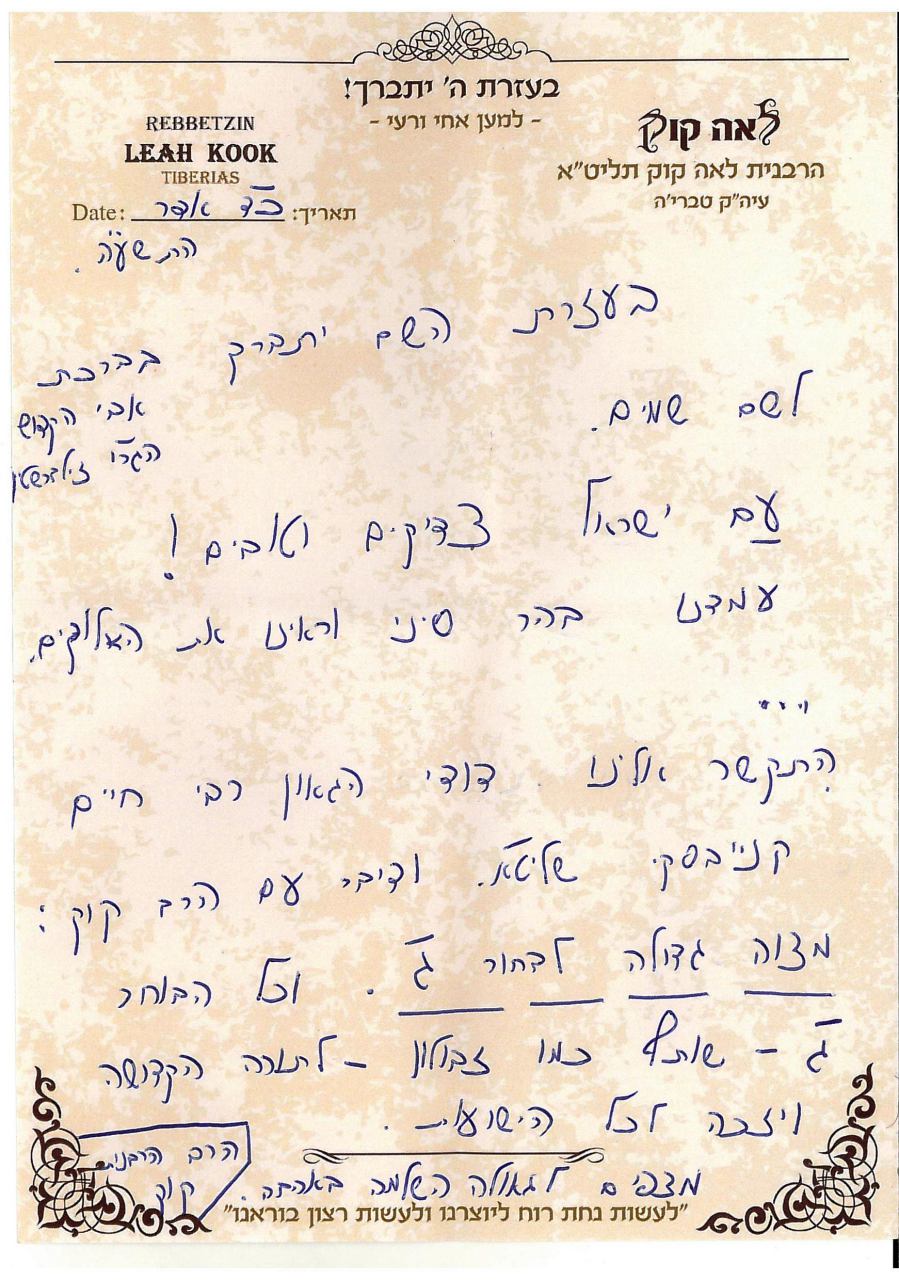 בעזרת ה' יתברך!
- למען אחי ורעי -
REBBETZIN
LEAH KOOK
TIBERIAS
לאה קוק
הרבנית לאה קוק תליט"א
עיה"ק טברי'ה
Date: כ"ד אדר תאריך:
התשע"ה.
בעזרת השם יתברך בברכת
אבי הקדוש
הגר"י זילברשטיין
לשם שמים.
עם ישראל צדיקים וטובים!
עמדנו בהר סיני וראינו את האלוקים.
התקשר אלינו דודי הגאון רבי חיים
קנייבסקי שליט"א. ודיבר עם הרב קוק:
מצוה גדולה לבחור ג'. וכל הבוחר
ג' - שותף כמו זבולון - לתורה הקדושה
ויזכה לכל הישועות.
מצפים לגאולה השלמה באהבה.
הרב הרבנית
קוק
"לעשות נחת רוח ליוצרנו ולעשות רצון בוראנו"